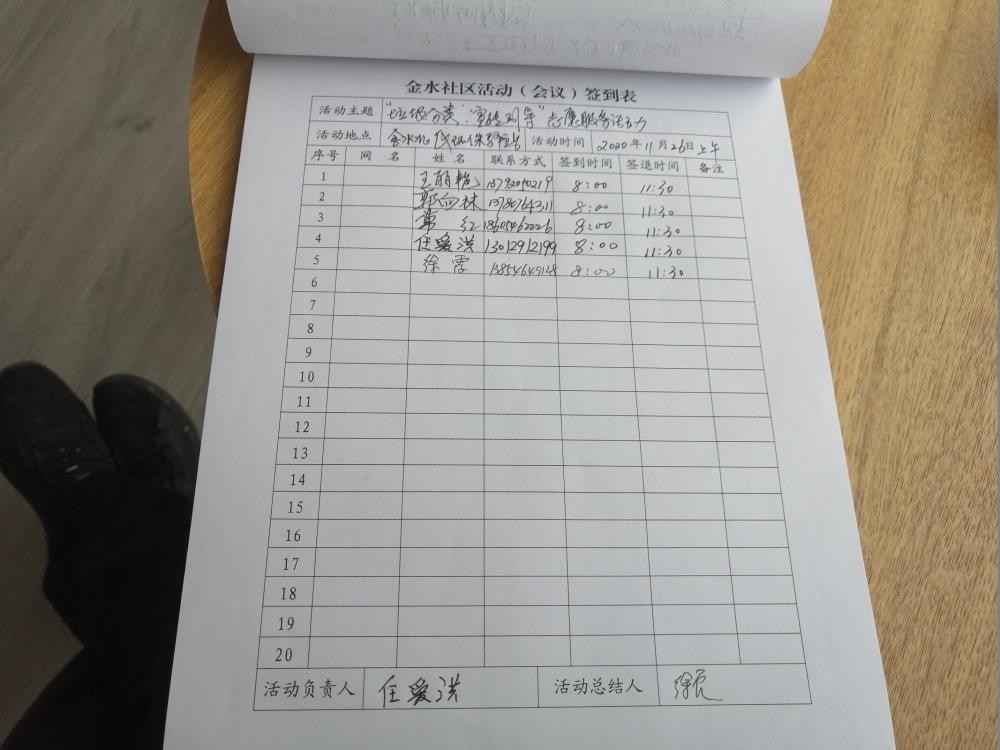 金水社区活动（会议）签到表
活动主题 "垃圾分类" 志愿服务活动
活动地点 金水 活动时间 2020年11月26日上午
序号 网 名 姓 名 联系方式 签到时间 签退时间 备注
1 王丽艳 8:00 11:30
2 郭向林 13780764311 8:00 11:30
3 红 18605462226 8:00 11:30
4 任爱洪 13012912199 8:00 11:30
5 徐雪 13854649128 8:00 11:30
6
7
8
9
10
11
12
13
14
15
16
17
18
19
20
活动负责人 任爱洪 活动总结人